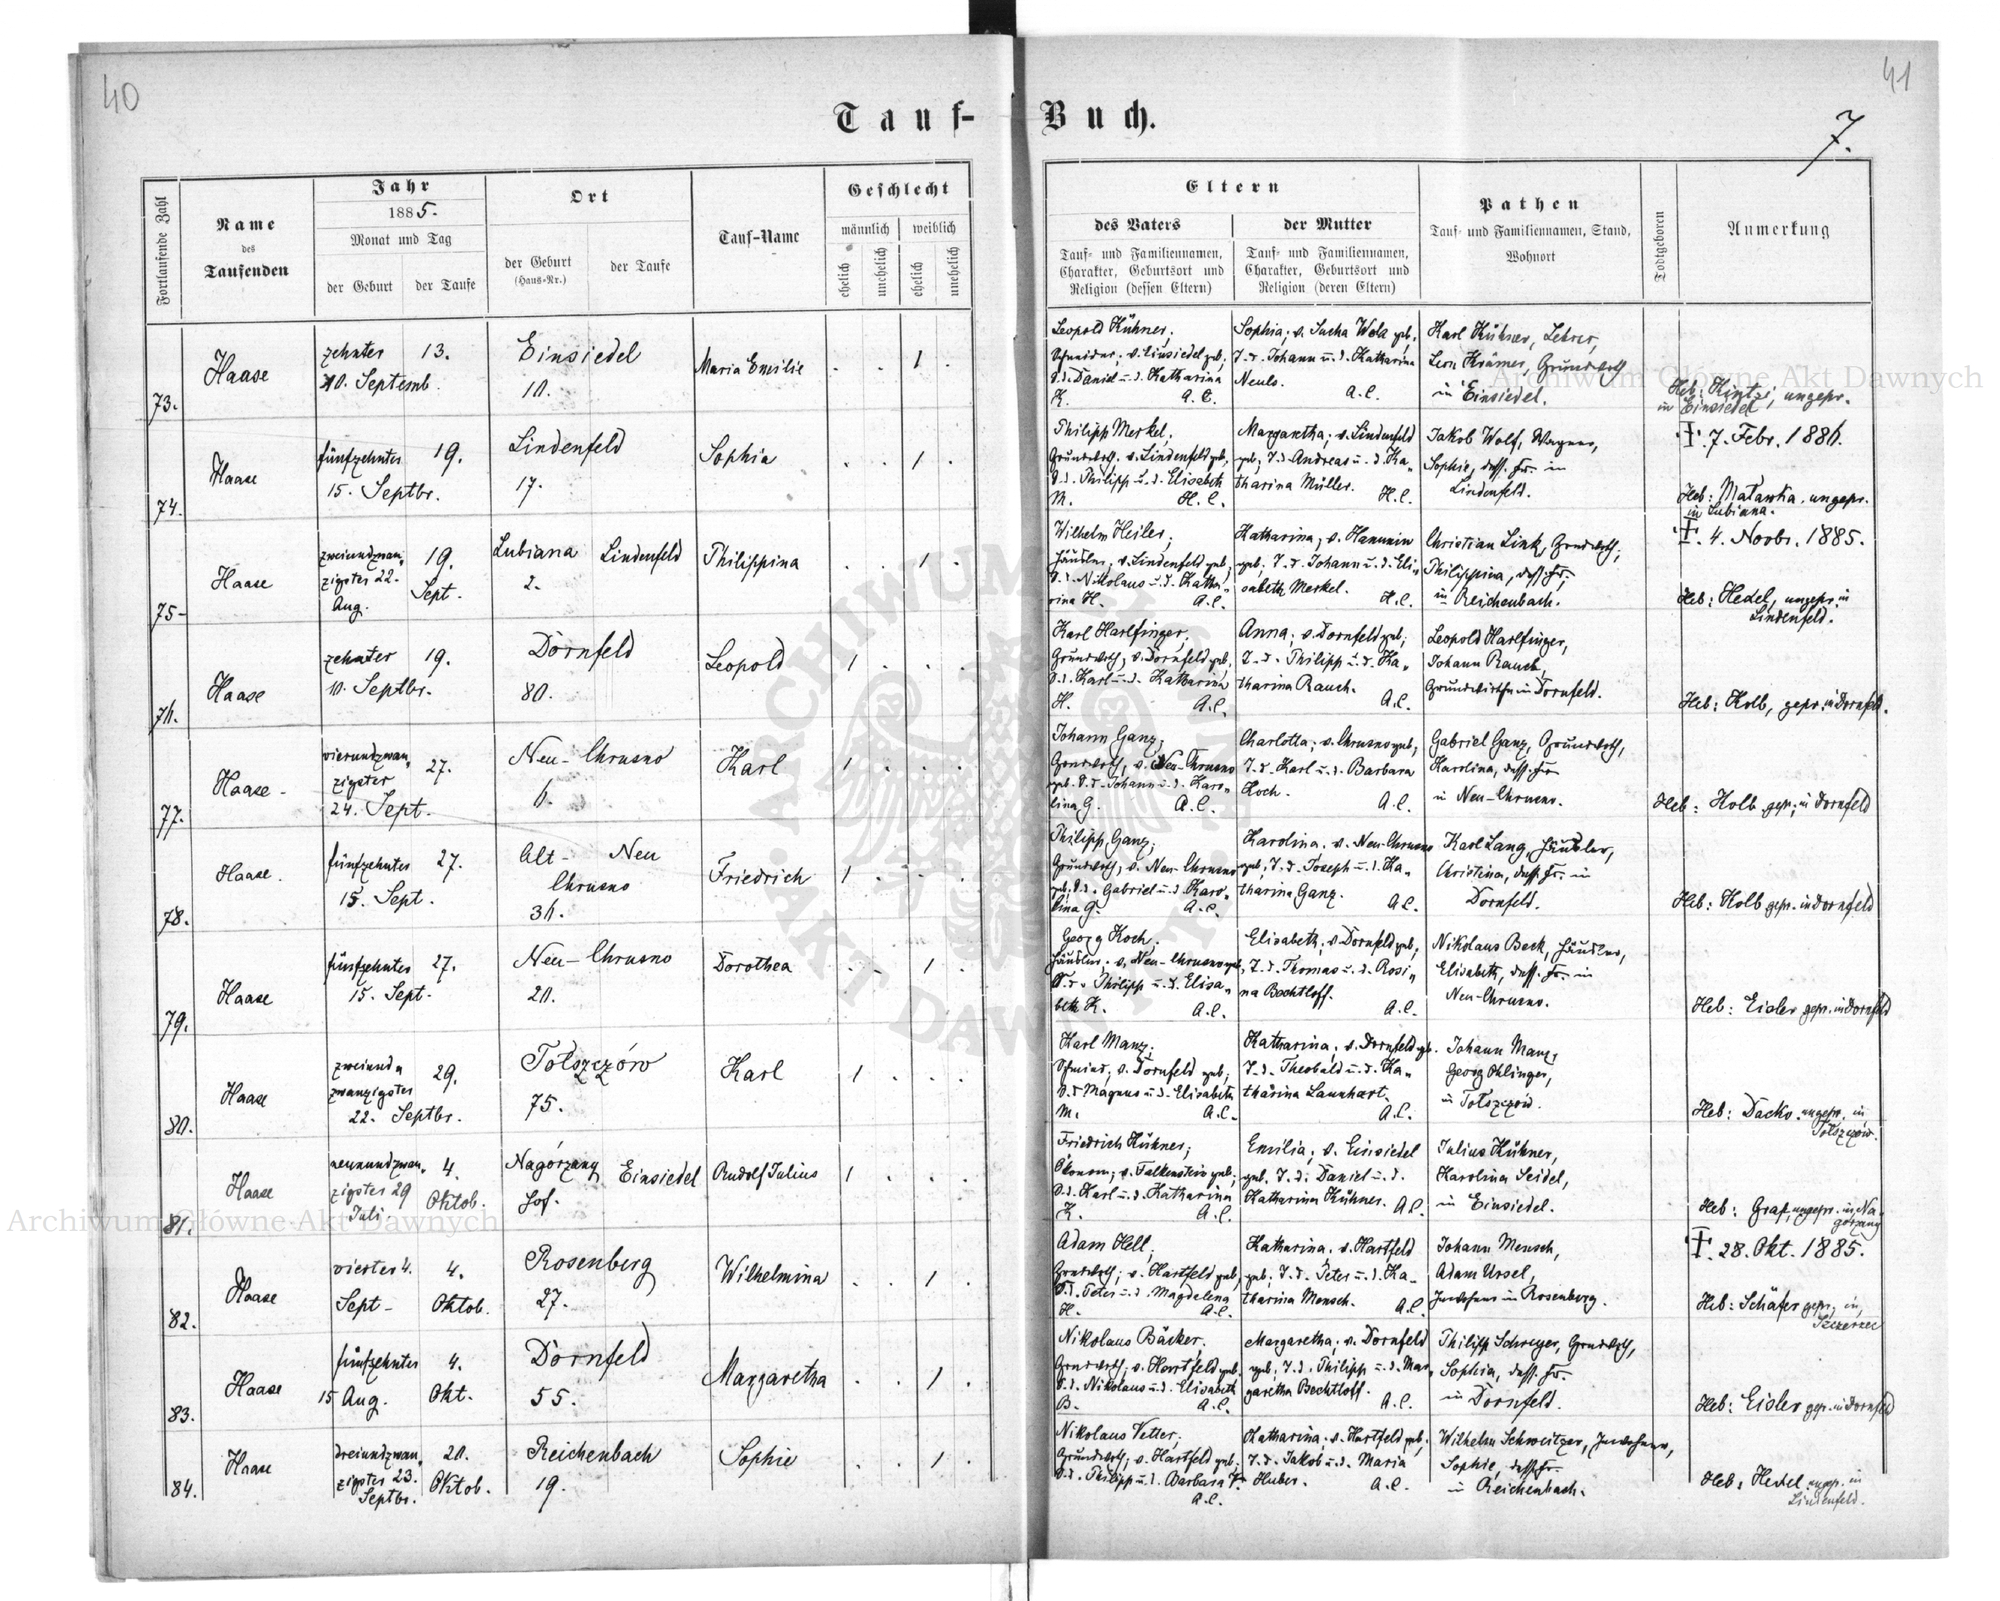 40
41
Tauf-
Buch.
7.
Fortlaufende Zahl
Name
des
Taufenden
Jahr
1885.
Monat und Tag
der Geburt
der Taufe
Ort
der Geburt
(Haus-Nr.)
der Taufe
Tauf-Name
Geschlecht
männlich
weiblich
ehelich
unehelich
ehelich
unehelich
Eltern
des Vaters
Tauf- und Familiennamen,
Charakter, Geburtsort und
Religion (dessen Eltern)
der Mutter
Tauf- und Familiennamen,
Charakter, Geburtsort und
Religion (deren Eltern)
Pathen
Tauf- und Familiennamen, Stand,
Wohnort
Todtgeboren
Anmerkung
73.
Haase
zehnter
10. Septemb.
13.
Einsiedel
10.
Maria Emilie
1
Leopold Kühner,
Schneider, v. Einsiedel geb.,
S.d. Daniel u. d. Katharina
K. A.C.
Sophia; v. Sucha Wola geb.,
T. d. Johann u. d. Katharina
Neuls. A.C.
Karl Kühner, Lehrer,
Leon Krämer, Grundwth
in Einsiedel.
Heb: Hintzi, ungepr.
in Einsiedel
74.
Haase
fünfzehnter
15. Septbr.
19.
Lindenfeld
17.
Sophia
1
Philipp Merkel,
Grundwth. v. Lindenfeld geb.,
S.d. Philipp u. d. Elisabeth
M. H.C.
Margaretha; v. Lindenfeld
geb; T. d. Andreas u. d. Ka-
tharina Müller. H.C.
Jakob Wolf, Wagner,
Sophie, dess. Fr. in
Lindenfeld.
†. 7. Febr. 1886.
Heb: Matawka, ungepr.
in Lubiana.
75.
Haase
zweiundzwan-
zigster 22.
Aug.
19.
Sept.
Lubiana
2.
Lindenfeld
Philippina
1
Wilhelm Heiler,
Häusler, v. Lindenfeld geb.,
S.d. Nikolaus u. d. Katha-
rina H. A.C.
Katharina; v. Hanunin
geb; T. d. Johann u. d. Eli-
sabeth Merkel. H.C.
Christian Link, Grundwth,
Philippina, dess. Fr.,
in Reichenbach.
†. 4. Novbr. 1885.
Heb: Hedel, ungepr. in
Lindenfeld.
76.
Haase
zehnter
10. Septbr.
19.
Dornfeld
80.
Leopold
1
Karl Harlfinger,
Grundwth, v. Dornfeld geb.,
S.d. Karl u. d. Katharina
H. A.C.
Anna; v. Dornfeld geb;
T. d. Philipp u. d. Ka-
tharina Rauch. A.C.
Leopold Harlfinger,
Johann Rauch,
Grundwirthe in Dornfeld.
Heb: Kolb, gepr. in Dornfeld.
77.
Haase
vierundzwan-
zigster
24. Sept.
27.
Neu-Chrusno
6.
Karl
1
Johann Ganz,
Grundwth, v. Neu-Chrusno
geb. S.d. Johann u. d. Karo-
lina G. A.C.
Charlotta; v. Chrusno geb,
T. d. Karl u. d. Barbara
Koch. A.C.
Gabriel Ganz, Grundwth,
Karolina, dess. Fr.
in Neu-Chrusno.
Heb: Kolb gepr. in Dornfeld
78.
Haase.
fünfzehnter
15. Sept.
27.
Alt- Neu
Chrusno
36.
Friedrich
1
Philipp Ganz,
Grundwth, v. Neu-Chrusno
geb, S.d. Gabriel u. d. Karo-
lina G. A.C.
Karolina. v. Neu-Chrusno
geb, T. d. Joseph u. d. Ka-
tharina Ganz. A.C.
Karl Lang, Häusler,
Christina, dess. Fr. in
Dornfeld.
Heb: Kolb gepr. in Dornfeld
79.
Haase
fünfzehnter
15. Sept.
27.
Neu-Chrusno
20.
Dorothea
1
Georg Koch,
Häusler, v. Neu-Chrusno geb,
S.d. Philipp u. d. Elisa-
beth K. A.C.
Elisabeth; v. Dornfeld geb,
T. d. Thomas u. d. Rosi-
na Bechtloff. A.C.
Nikolaus Beck, Häusler,
Elisabeth, dess. Fr. in
Neu-Chrusno.
Heb: Eisler gepr. in Dornfeld
80.
Haase
zweiund-
zwanzigster
22. Septbr.
29.
Tołszczów
75.
Karl
1
Karl Manz,
Schmied, v. Dornfeld geb,
S.d. Magnus u. d. Elisabeth
M. A.C.
Katharina; v. Dornfeld geb.
T. d. Theobald u. d. Ka-
tharina Launhart. A.C.
Johann Manz,
Georg Ohlinger,
in Tołszczów.
Heb: Dacko, ungepr. in
Tołszczów.
81.
Haase
neunundzwan-
zigster 29
Juli
4.
Oktob.
Nagórzany
Hof.
Einsiedel
Rudolf Julius
1
Friedrich Kühner;
Ökonom; v. Falkenstein geb;
S.d. Karl u. d. Katharina
K. A.C.
Emilia; v. Einsiedel
geb. T. d. Daniel u. d.
Katharina Kühner. A.C.
Julius Kühner,
Karolina Seidel,
in Einsiedel.
Heb: Graf, ungepr. in Na-
górzany
82.
Haase
vierter 4.
Sept.
4.
Oktob.
Rosenberg
27.
Wilhelmina
1
Adam Hell,
Grundwth; v. Hartfeld geb,
S.d. Peter u. d. Magdalena
H. A.C.
Katharina. v. Hartfeld
geb; T. d. Peter u. d. Ka-
tharina Mensch. A.C.
Johann Mensch,
Adam Ursel,
Inwohner in Rosenberg.
†. 28. Okt. 1885.
Heb: Schäfer gepr. in
Szczerzec
83.
Haase
fünfzehnter
15 Aug.
4.
Okt.
Dornfeld
55.
Margaretha
1
Nikolaus Bäcker,
Grundwth; v. Hartfeld geb.
S.d. Nikolaus u. d. Elisabeth
B. A.C.
Margaretha; v. Dornfeld
geb; T. d. Philipp u. d. Mar-
garetha Bechtloff. A.C.
Philipp Schreyer, Grundwth,
Sophia, dess. Fr.
in Dornfeld.
Heb: Eisler gepr. in Dornfeld
84.
Haase
dreiundzwan-
zigster 23.
Septbr.
20.
Oktob.
Reichenbach
19.
Sophie
1
Nikolaus Vetter,
Grundwth; v. Hartfeld geb;
S.d. Philipp u. d. Barbara V.
A.C.
Katharina; v. Hartfeld geb.
T. d. Jakob u. d. Maria
Huber. A.C.
Wilhelm Schweitzer, Inwohner,
Sophie, dess. Fr.
in Reichenbach.
Heb: Hedel ungepr. in
Lindenfeld.
Archiwum Główne Akt Dawnych
Archiwum Główne Akt Dawnych